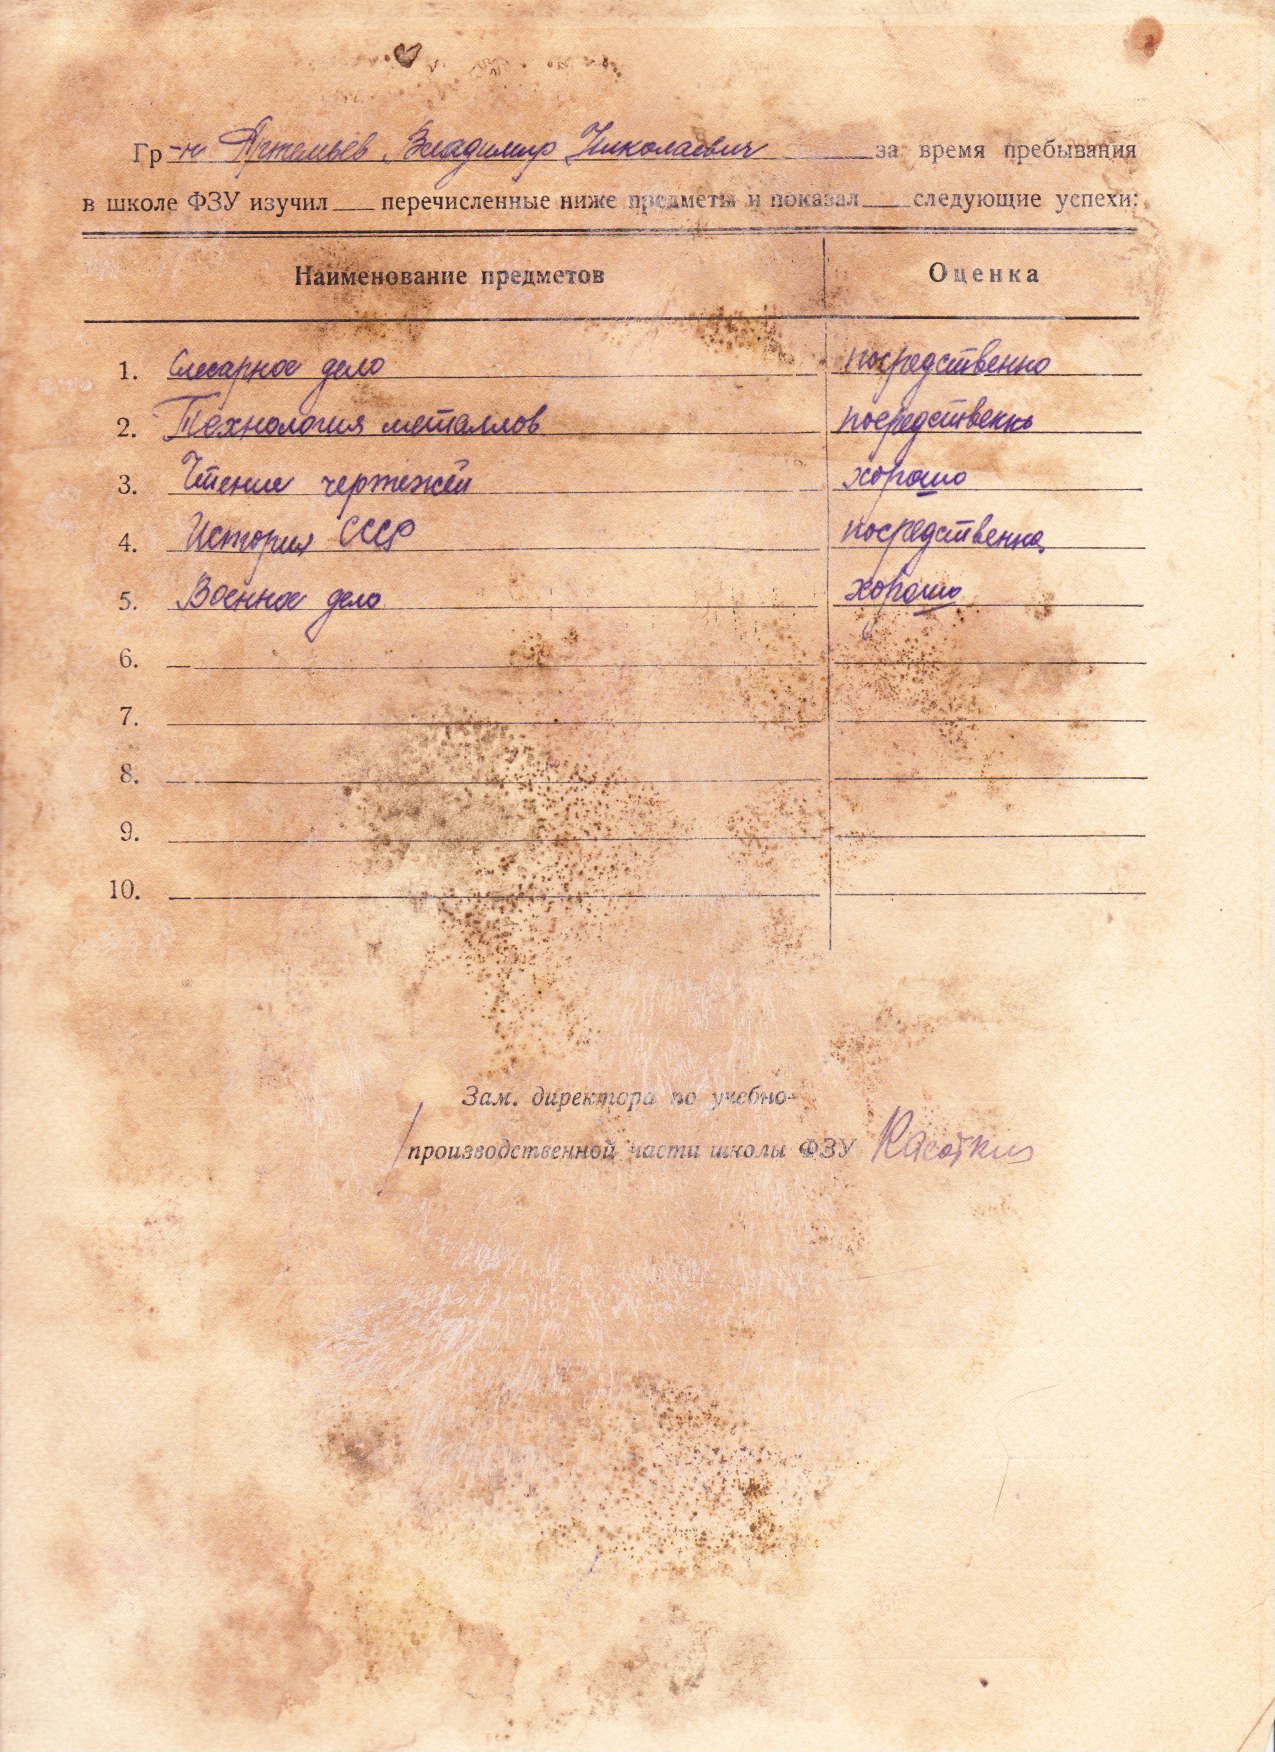 Гр-н Артемьев Владимир Николаевич за время пребывания
в школе ФЗУ изучил перечисленные ниже предметы и показал следующие успехи:
Наименование предметов Оценка
1. Слесарное дело посредственно
2. Технология металлов посредственно
3. Чтение чертежей хорошо
4. История СССР посредственно
5. Военное дело хорошо
6.
7.
8.
9.
10.
Зам. директора по учебно-
производственной части школы ФЗУ Касаткин